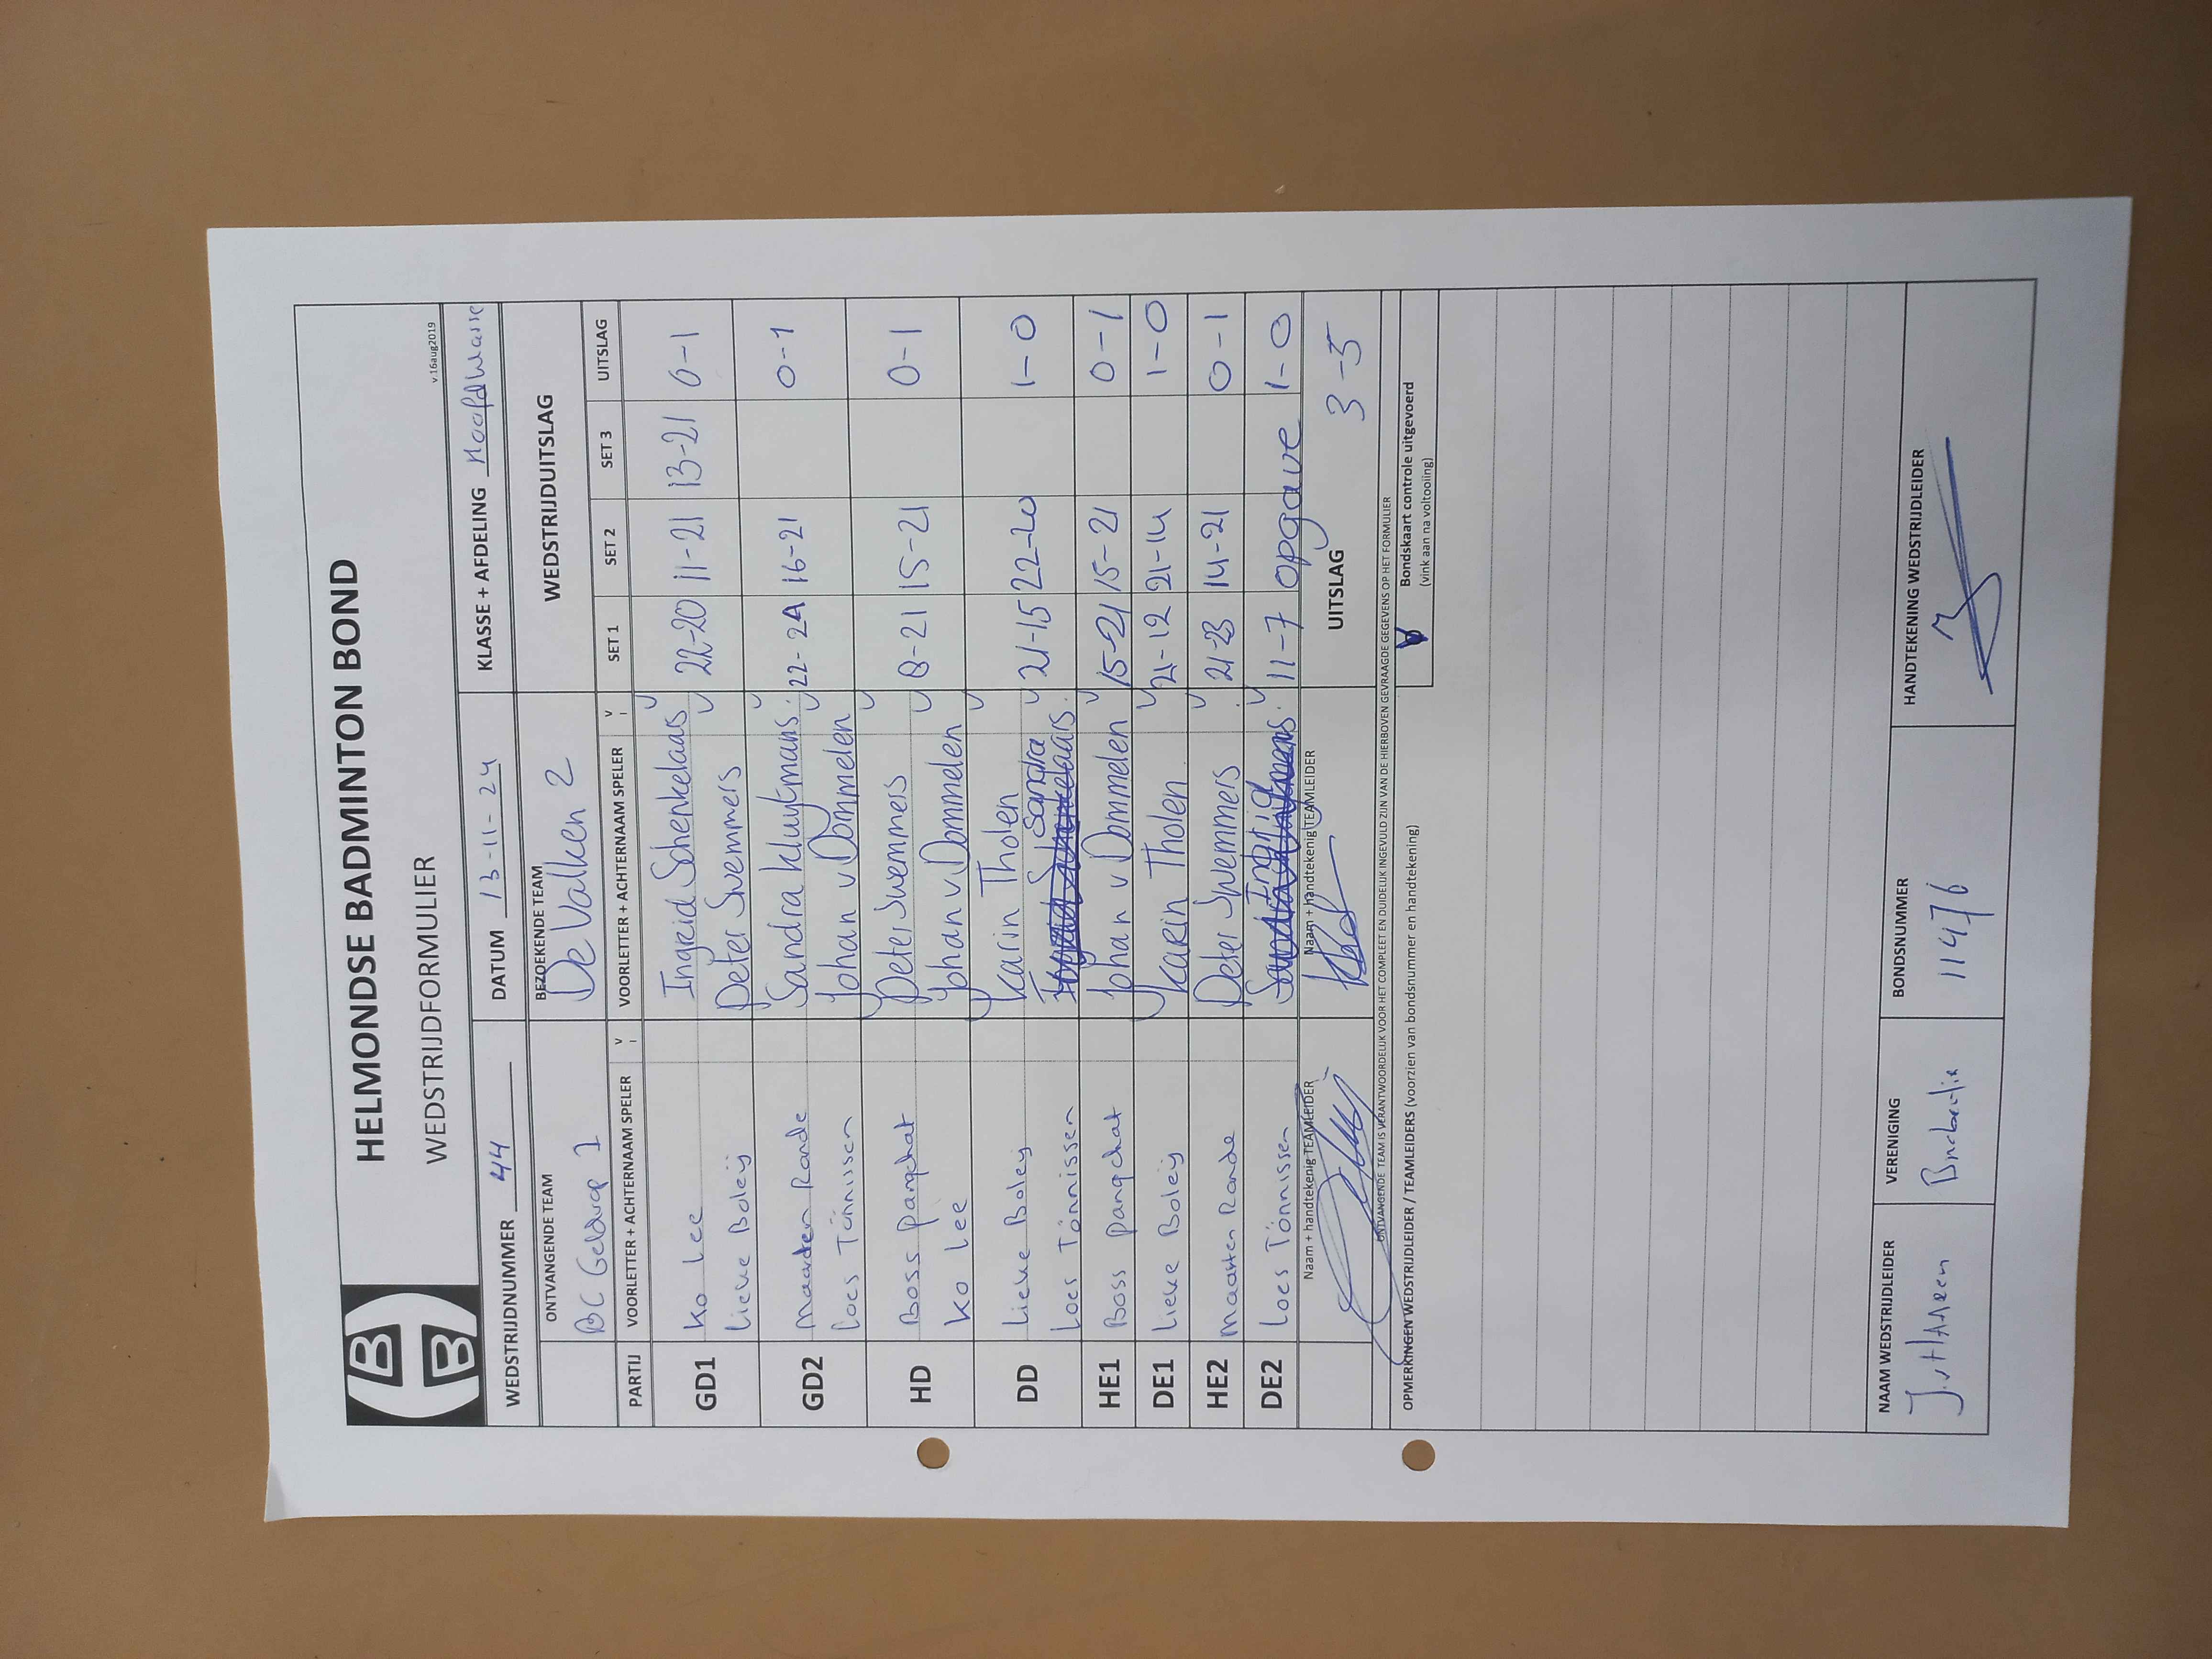 HELMONDSE BADMINTON BOND
WEDSTRIJDFORMULIER
v.16aug2019
WEDSTRIJDNUMMER 44 DATUM 13-11-24 KLASSE + AFDELING Hoofdklasse
ONTVANGENDE TEAM BEZOEKENDE TEAM WEDSTRIJDUITSLAG
BC Geldrop 1 De Valken 2
PARTIJ VOORLETTER + ACHTERNAAM SPELER V VOORLETTER + ACHTERNAAM SPELER V SET 1 SET 2 SET 3 UITSLAG
GD1 Ko Lee Ingrid Schenkelaars 22-20 11-21 13-21 0-1
Lieke Boleij Peter Swemmers
GD2 Maarten Rande Sandra Kluijtmans 22-24 16-21 0-1
Loes Tönnissen Johan v Dommelen
HD Boss Pangchat Peter Swemmers 8-21 15-21 0-1
Ko Lee Johan v Dommelen
DD Lieke Boleij Karin Tholen 21-15 22-20 1-0
Loes Tönnissen Sandra
HE1 Boss Pangchat Johan v Dommelen 15-21 15-21 0-1
DE1 Lieke Boleij Karin Tholen 21-12 21-14 1-0
HE2 Maarten Rande Peter Swemmers 21-23 14-21 0-1
DE2 Loes Tönnissen Ingrid 11-7 opgave 1-0
Naam + handtekenig TEAMLEIDER Naam + handtekenig TEAMLEIDER UITSLAG 3-5
ONTVANGENDE TEAM IS VERANTWOORDELIJK VOOR HET COMPLEET EN DUIDELIJK INGEVULD ZIJN VAN DE HIERBOVEN GEVRAAGDE GEGEVENS OP HET FORMULIER
OPMERKINGEN WEDSTRIJDLEIDER / TEAMLEIDERS (voorzien van bondsnummer en handtekening) V Bondskaart controle uitgevoerd
(vink aan na voltooiing)
NAAM WEDSTRIJDLEIDER VERENIGING BONDSNUMMER HANDTEKENING WEDSTRIJDLEIDER
11476